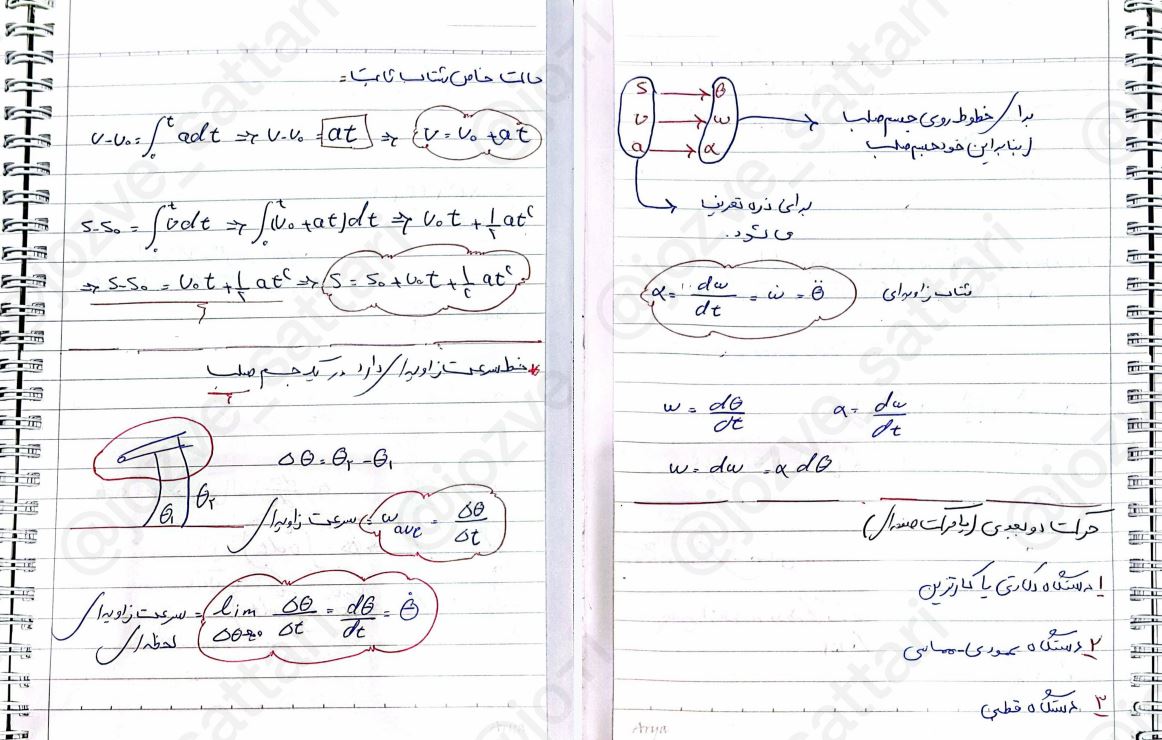 حالت خاص شتاب ثابت =
v-v₀ = ∫₀ᵗ a dt ⇒ v-v₀ = at ⇒ v = v₀ + at
s-s₀ = ∫₀ᵗ v dt ⇒ ∫₀ᵗ (v₀ + at) dt ⇒ v₀t + ½ at²
⇒ s-s₀ = v₀t + ½ at² ⇒ s = s₀ + v₀t + ½ at²
* خط سرعت زاویه‌ای دارد در یک جسم صلب
Δθ = θ₂ - θ₁
θ₁ θ₂
سرعت زاویه‌ای = ω ave = Δθ/Δt
سرعت زاویه‌ای لحظه‌ای = lim Δθ/Δt = dθ/dt = θ̇
s → θ
v → ω
a → α
برای خطوط روی جسم صلب
(بنابراین خود جسم صلب
برای ذره تعریف
می شود.
شتاب زاویه‌ای α = dω/dt = ω̇ = θ̈
ω = dθ/dt α = dω/dt
ω = dω = α dθ
حرکت دو بعدی (یا حرکت صفحه‌ای)
۱ دستگاه دکارتی یا کارتزین
۲ دستگاه عمودی-مماسی
۳ دستگاه قطبی
Arya
Arya
@jozve_sattari